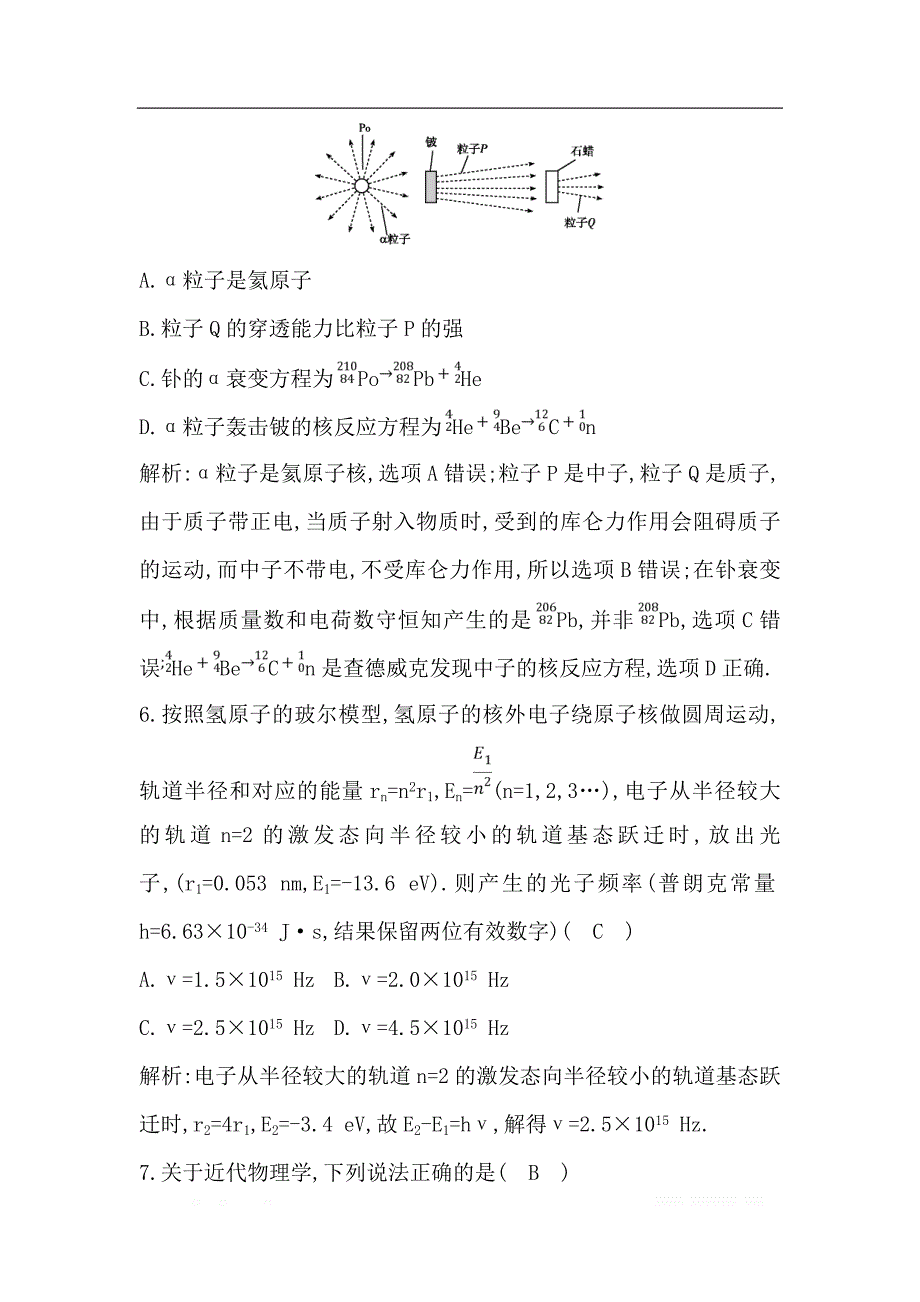 Po
铍
粒子P
石蜡
α粒子
粒子Q
A.α粒子是氦原子
B.粒子Q的穿透能力比粒子P的强
C.钋的α衰变方程为²¹⁰₈₄Po→²⁰⁸₈₂Pb+⁴₂He
D.α粒子轰击铍的核反应方程为⁴₂He+⁹₄Be→¹²₆C+¹₀n
解析:α粒子是氦原子核,选项A错误;粒子P是中子,粒子Q是质子,
由于质子带正电,当质子射入物质时,受到的库仑力作用会阻碍质子
的运动,而中子不带电,不受库仑力作用,所以选项B错误;在钋衰变
中,根据质量数和电荷数守恒知产生的是²⁰⁶₈₂Pb,并非²⁰⁸₈₂Pb,选项C错
误;⁴₂He+⁹₄Be→¹²₆C+¹₀n是查德威克发现中子的核反应方程,选项D正确.
6.按照氢原子的玻尔模型,氢原子的核外电子绕原子核做圆周运动,
轨道半径和对应的能量rₙ=n²r₁,Eₙ=E₁/n²(n=1,2,3…),电子从半径较大
的轨道n=2的激发态向半径较小的轨道基态跃迁时,放出光
子,(r₁=0.053 nm,E₁=-13.6 eV).则产生的光子频率(普朗克常量
h=6.63×10⁻³⁴ J·s,结果保留两位有效数字)( C )
A.ν=1.5×10¹⁵ Hz B.ν=2.0×10¹⁵ Hz
C.ν=2.5×10¹⁵ Hz D.ν=4.5×10¹⁵ Hz
解析:电子从半径较大的轨道n=2的激发态向半径较小的轨道基态跃
迁时,r₂=4r₁,E₂=-3.4 eV,故E₂-E₁=hν,解得ν=2.5×10¹⁵ Hz.
7.关于近代物理学,下列说法正确的是( B )